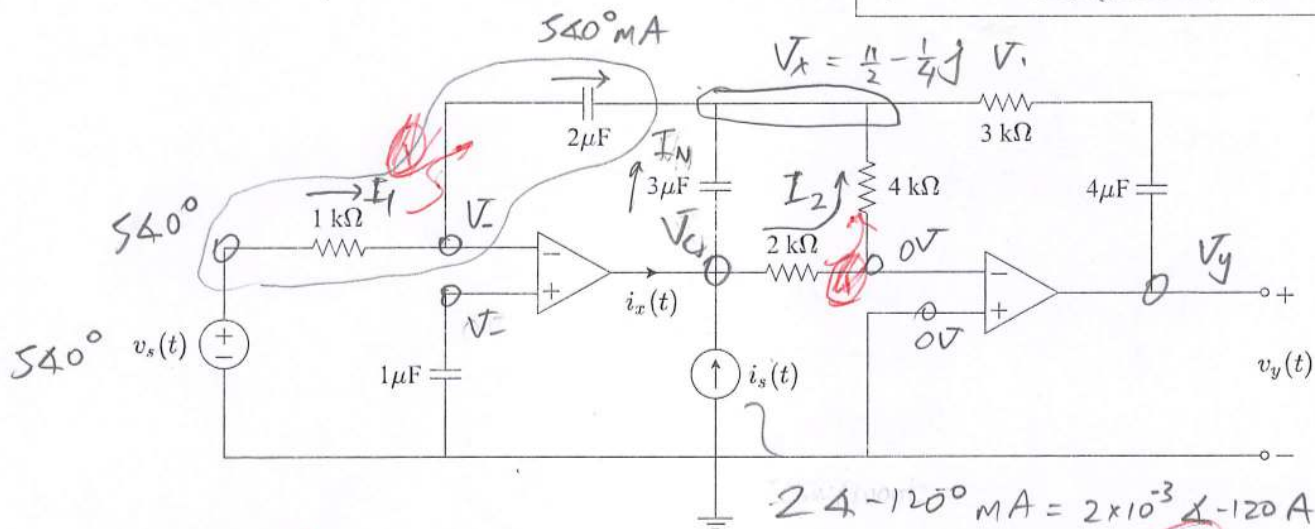 5∡0° mA
V_x = 11/2 - 1/4 j V.
2μF
3 kΩ
I_N
3μF
I_2
4 kΩ
4μF
I_1
5∡0°
1 kΩ
V_-
V_o
2 kΩ
0V
V_y
−
+
i_x(t)
−
+
+
V_-
0V
5∡0°
v_s(t)
+
−
1μF
i_s(t)
v_y(t)
−
2∡-120° mA = 2×10⁻³ ∡-120 A